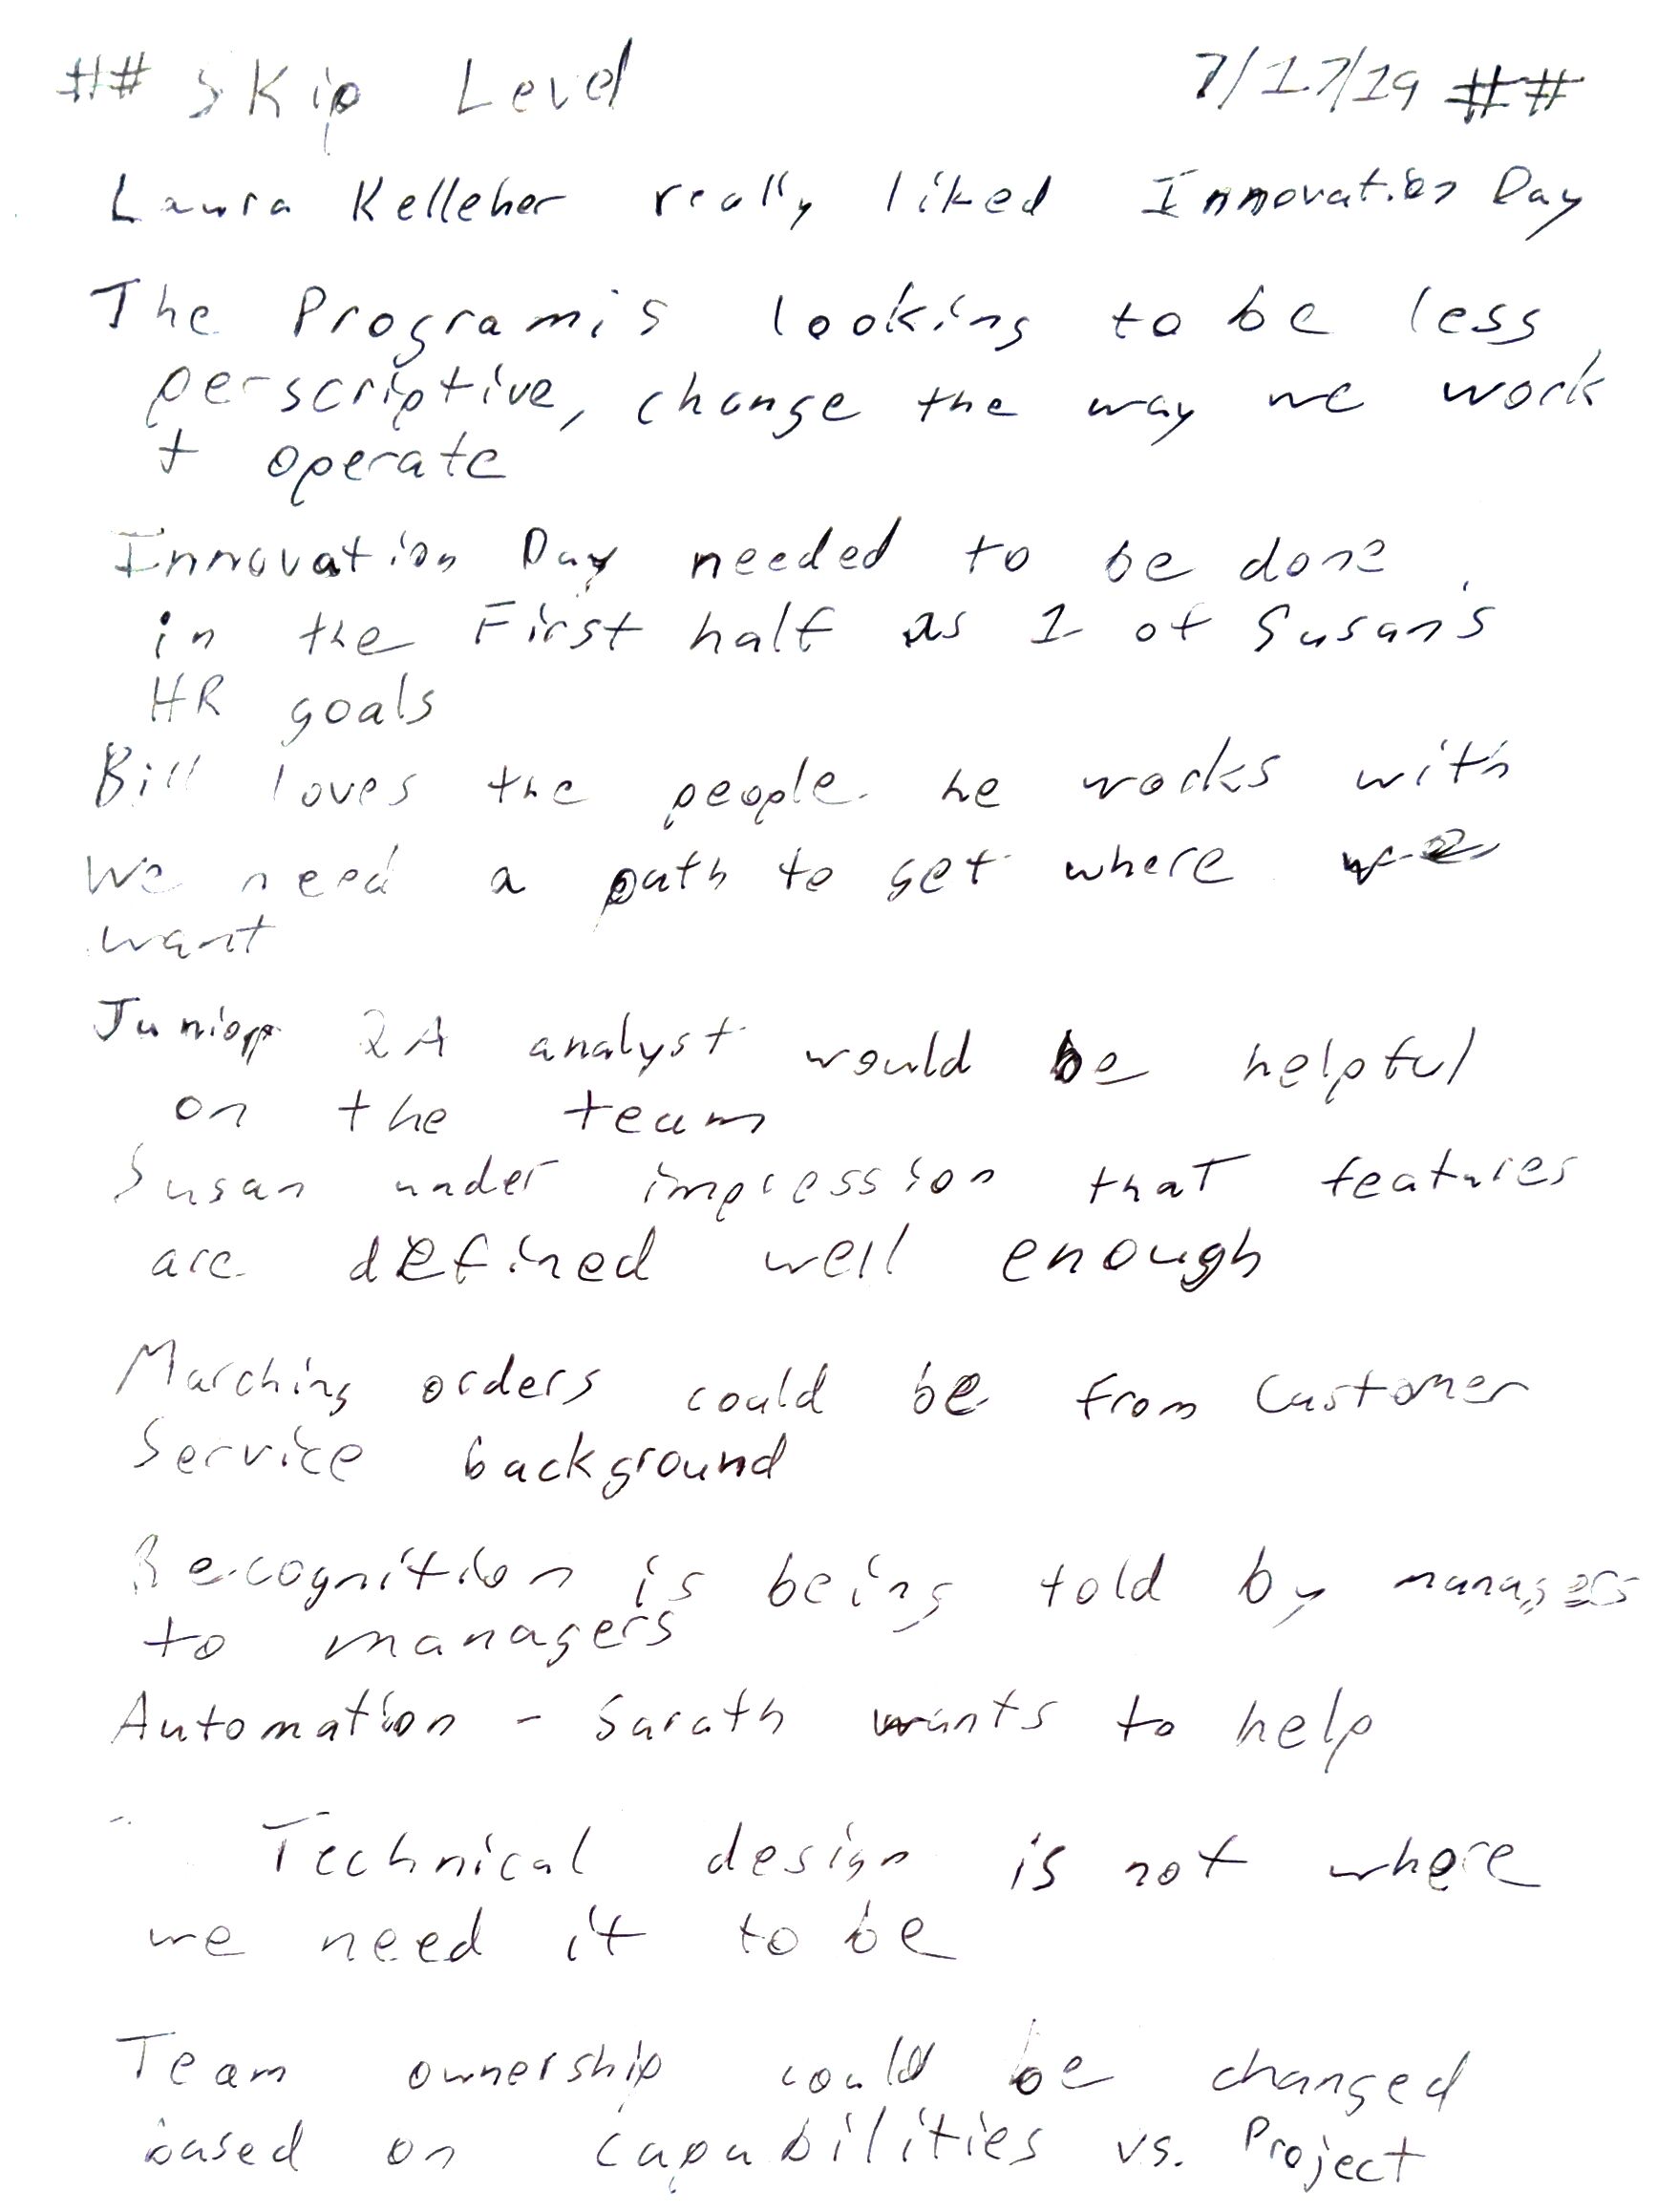 ## Skip Level 7/17/19 ##
Laura Kelleher really liked Innovation Day
The Program is looking to be less
perscriptive, change the way we work
+ operate
Innovation Day needed to be done
in the First half as 1 of Susan's
HR goals
Bill loves the people he works with
We need a path to get where we
want
Junior QA analyst would be helpful
on the team
Susan under impression that features
are defined well enough
Marching orders could be from Customer
Service background
Recognition is being told by managers
to managers
Automation - Sarath wants to help
- Technical design is not where
we need it to be
Team ownership could be changed
based on capabilities vs. Project